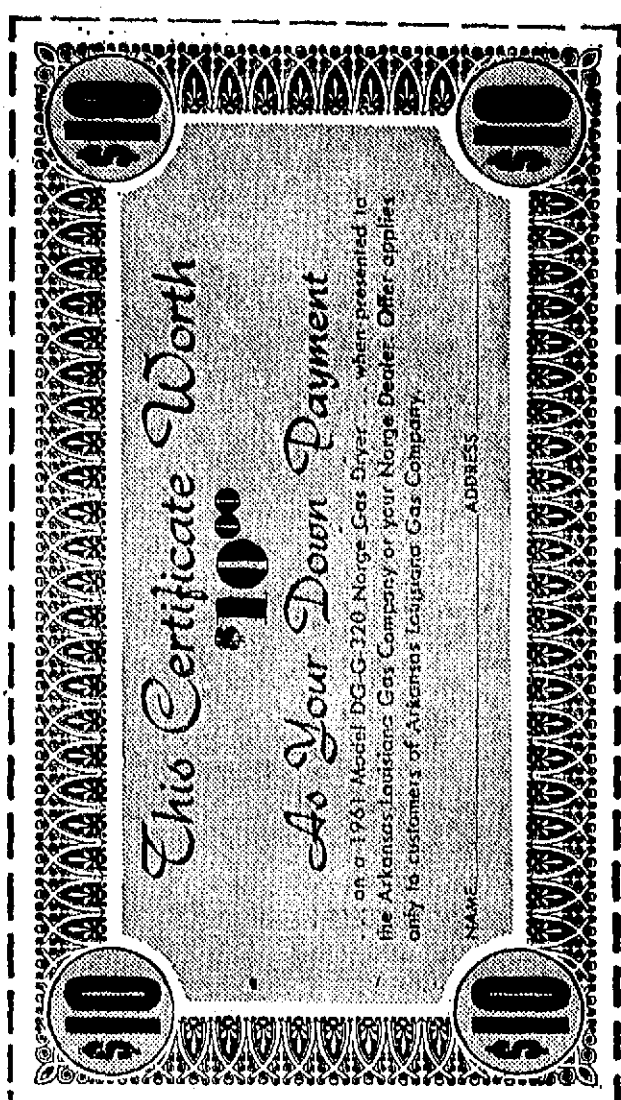 $10 $10
This Certificate Worth
$10.00
As Your Down Payment
.... on a 1961 Model DG-G-320 Norge Gas Dryer .... when presented to
the Arkansas Louisiana Gas Company or your Norge Dealer. Offer applies
only to customers of Arkansas Louisiana Gas Company.
NAME ADDRESS
$10 $10